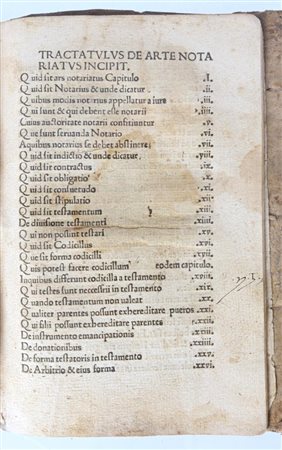 TRACTATVLVS DE ARTE NOTA
RIATVS INCIPIT.
Quid sit ars notariatus Capitulo .I.
Quid sit Notarius & unde dicatur .ii.
Quibus modis notarius appellatur a iure .iii.
Qui sunt & qui debent esse notarii .iiii.
Cuius auctoritate notarii constituntur .v.
Que sunt seruanda Notario .vi.
Aquibus notarius se debet abstinere .vii.
Quid sit indictio & unde dicatur .viii.
Quid sit contractus .ix.
Quid sit obligatio .x.
Quid sit consuetudo .xi.
Quid sit stipulatio .xii.
Quid sit testamentum .xiii.
De diuisione testamenti .xiiii.
Qui non possunt testari .xv.
Quid sit Codicillus .xvi.
Que sit forma codicilli .xvii.
Quis potest facere codicillum eodem capitulo.
Inquibus differunt codicilla a testamento .xviii.
Qui testes sunt neccesserii in testamento .xix.
Quando testamentum non ualeat .xx.
Qualiter parentes possunt exhereditare pueros .xxi.
Qui filii possunt exhereditare parentes .xxii.
De instrumento emancipationis .xxiii.
De donationibus .xxiiii.
De forma testatoris in testamento .xxv.
De Arbitrio & eius forma .xxvi.